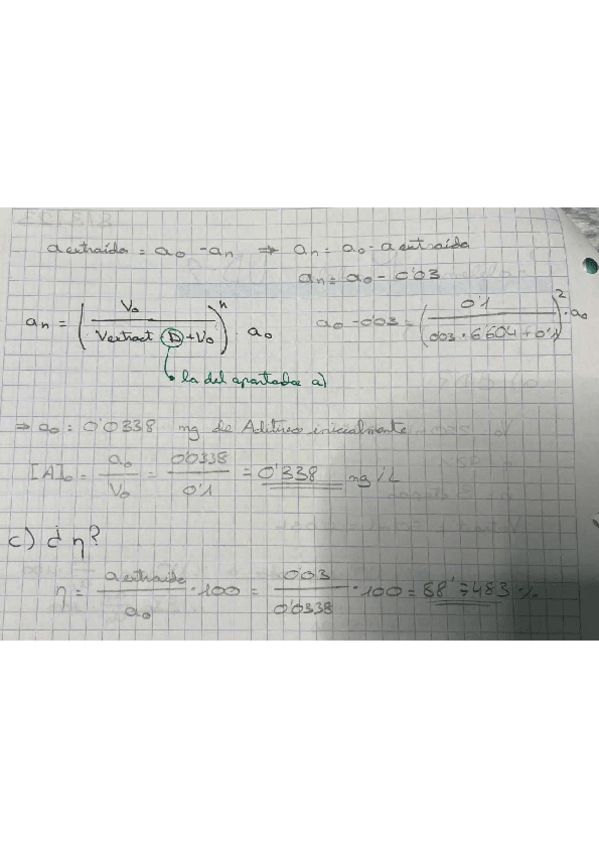 a extraído = a₀ - aₙ ⇒ aₙ = a₀ - a extraído
aₙ = a₀ - 0'03
aₙ = (V₀ / (Vextract D + V₀))ⁿ · a₀
a₀ - 0'03 = (0'1 / (0'03 · 6'604 + 0'1))² · a₀
la del apartado a)
⇒ a₀ = 0'0338 mg de Aditivo inicialmente
[A]₀ = a₀ / V₀ = 0'0338 / 0'1 = 0'338 mg/L
c) ¿ η?
η = a extraído / a₀ · 100 = 0'03 / 0'0338 · 100 = 88'7483 %